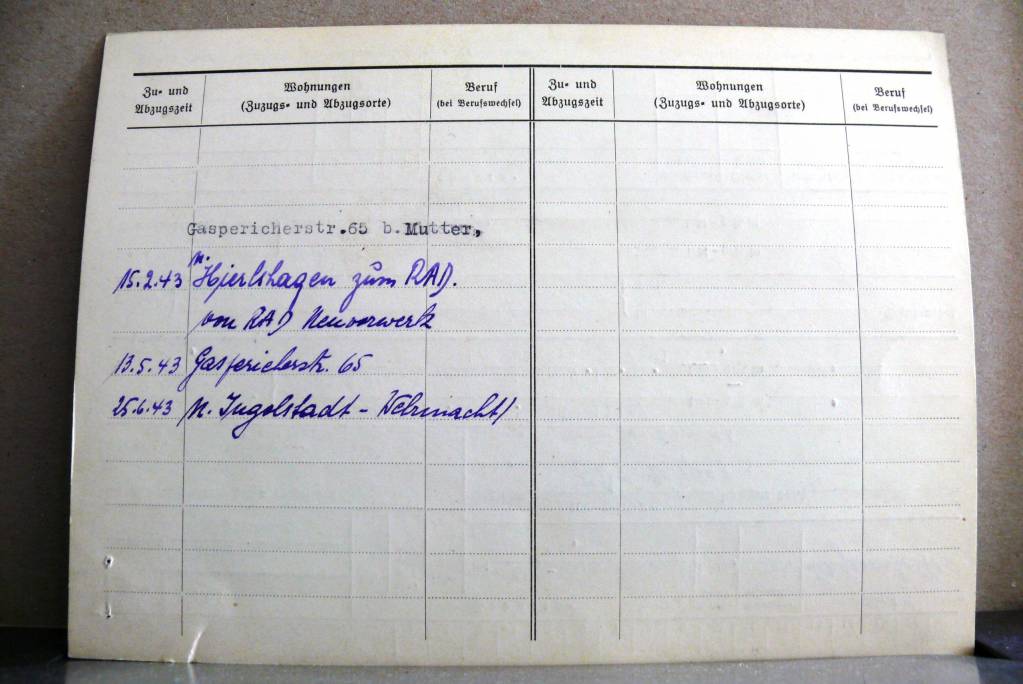 Zu- und
Abzugszeit
Wohnungen
(Zuzugs- und Abzugsorte)
Beruf
(bei Berufswechsel)
Zu- und
Abzugszeit
Wohnungen
(Zuzugs- und Abzugsorte)
Beruf
(bei Berufswechsel)
Gaspericherstr.65 b.Mutter,
15.2.43 n. Hierlshagen zum RAD.
von RAD Neuvorwerk
13.5.43 Gaspericherstr. 65
25.6.43 n. Ingolstadt - Wehrmacht/